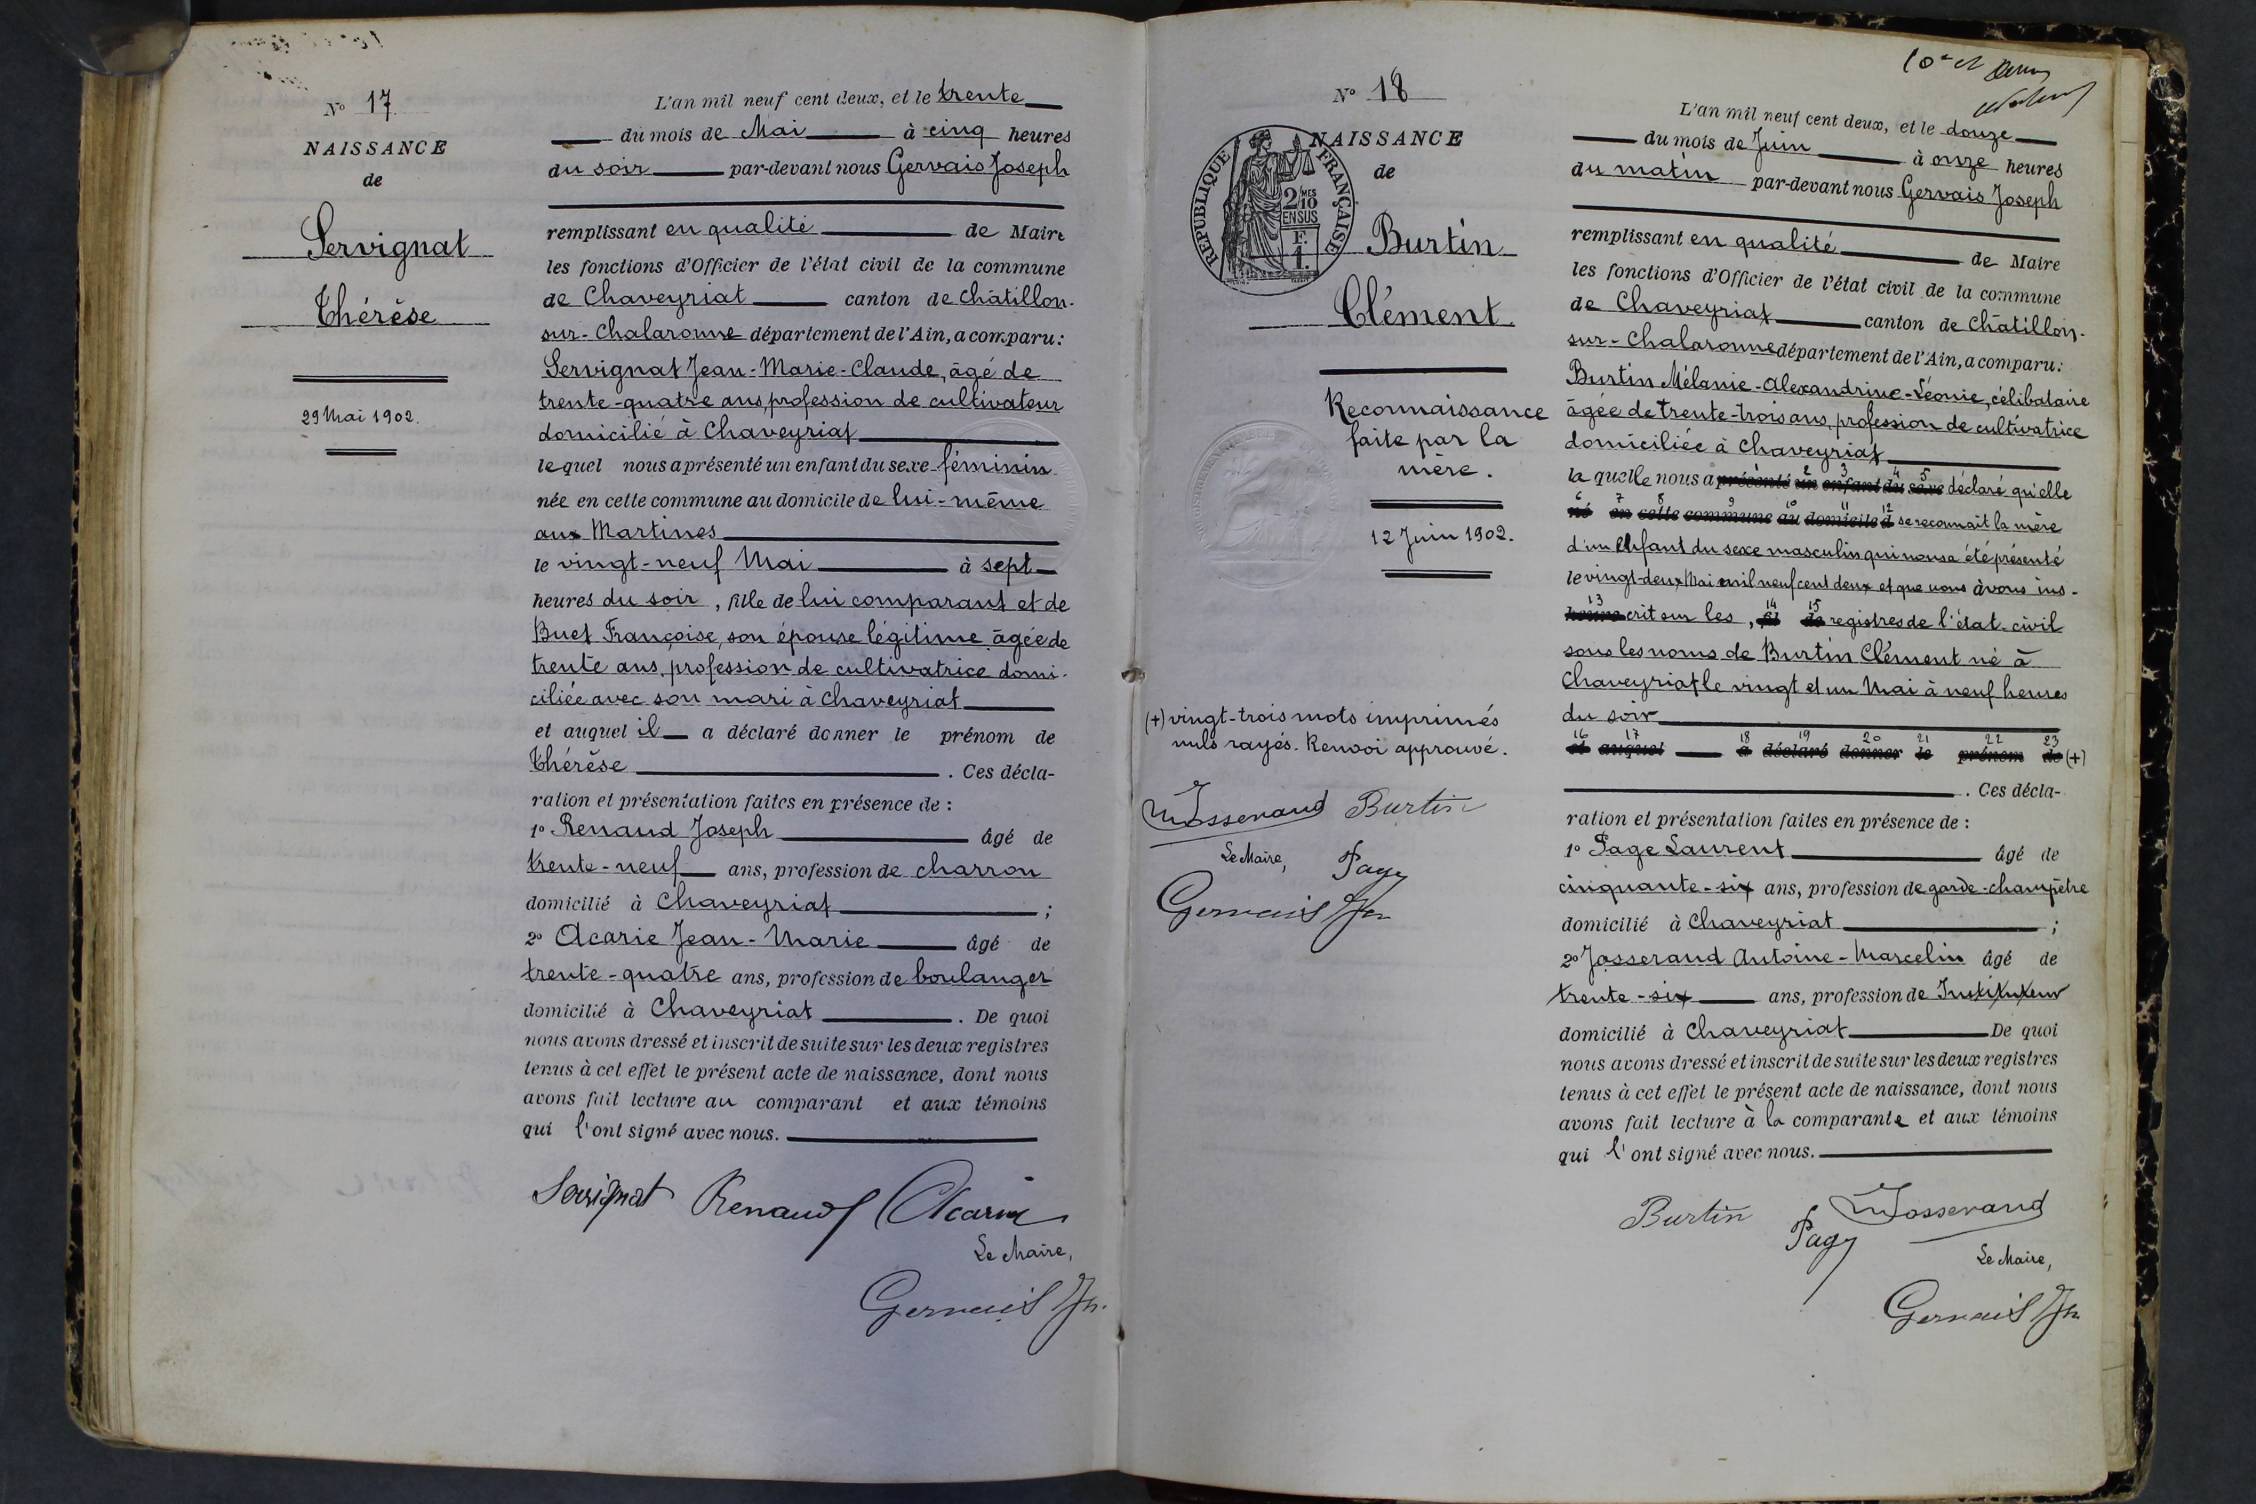 N° 17
NAISSANCE
de
Servignat
Thérèse
29 Mai 1902.
L'an mil neuf cent deux, et le trente
du mois de Mai à cinq heures
du soir par-devant nous Gervais Joseph
remplissant en qualité de Maire
les fonctions d'Officier de l'état civil de la commune
de Chaveyriat canton de Châtillon-
sur-Chalaronne département de l'Ain, a comparu:
Servignat Jean-Marie-Claude, âgé de
trente-quatre ans, profession de cultivateur
domicilié à Chaveyriat
lequel nous a présenté un enfant du sexe féminin
née en cette commune au domicile de lui-même
aux Martines
le vingt-neuf Mai à sept
heures du soir, fille de lui comparant et de
Buet Françoise, son épouse légitime âgée de
trente ans, profession de cultivatrice domi-
ciliée avec son mari à Chaveyriat
et auquel il a déclaré donner le prénom de
Thérèse . Ces décla-
ration et présentation faites en présence de :
1° Renaud Joseph âgé de
trente-neuf ans, profession de charron
domicilié à Chaveyriat ;
2° Acarie Jean-Marie âgé de
trente-quatre ans, profession de boulanger
domicilié à Chaveyriat . De quoi
nous avons dressé et inscrit de suite sur les deux registres
tenus à cet effet le présent acte de naissance, dont nous
avons fait lecture au comparant et aux témoins
qui l'ont signé avec nous.
Servignat Renaud Acarie
Le Maire,
Gervais Jh.
N° 18
NAISSANCE
de
REPUBLIQUE FRANÇAISE
2/10 MES
EN SUS
F.
1.
Burtin
Clément
Reconnaissance
faite par la
mère.
12 Juin 1902.
(+) vingt-trois mots imprimés
nuls rayés. Renvoi approuvé.
Josserand Burtin
Le Maire, Page
Gervais Jh
L'an mil neuf cent deux, et le douze
du mois de Juin à onze heures
du matin par-devant nous Gervais Joseph
remplissant en qualité de Maire
les fonctions d'Officier de l'état civil de la commune
de Chaveyriat canton de Châtillon-
sur-Chalaronne département de l'Ain, a comparu:
Burtin Mélanie-Alexandrine-Léonie, célibataire
âgée de trente-trois ans, profession de cultivatrice
domiciliée à Chaveyriat
laquelle nous a présenté un 2 enfant 3 du 4 sexe 5 déclaré qu'elle
né 6 en 7 cette 8 commune 9 au 10 domicile 11 d 12 se reconnait la mère
d'un Enfant du sexe masculin qui nous a été présenté
le vingt-deux Mai mil neuf cent deux et que nous avons ins-
heures 13 crit sur les , fil 14 de 15 registres de l'état civil
sous les noms de Burtin Clément né à
Chaveyriat le vingt et un Mai à neuf heures
du soir
et 16 auquel 17 a 18 déclaré 19 donner 20 le 21 prénom 22 de 23 (+)
. Ces décla-
ration et présentation faites en présence de :
1° Page Laurent âgé de
cinquante-six ans, profession de garde-champêtre
domicilié à Chaveyriat ;
2° Josserand Antoine-Marcelin âgé de
trente-six ans, profession de Instituteur
domicilié à Chaveyriat De quoi
nous avons dressé et inscrit de suite sur les deux registres
tenus à cet effet le présent acte de naissance, dont nous
avons fait lecture à la comparante et aux témoins
qui l'ont signé avec nous.
Burtin Page Josserand
Le Maire,
Gervais Jh.